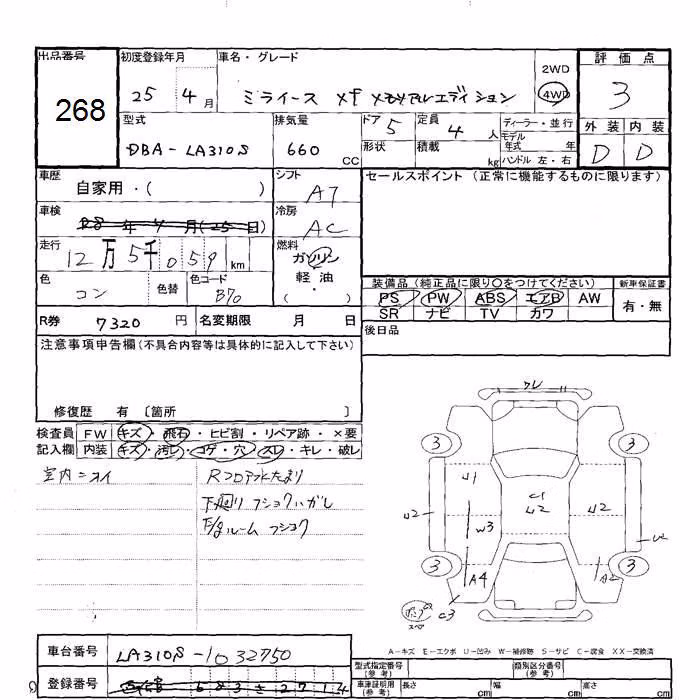 出品番号 初度登録年月 車名・グレード 評価点
268
25 4月 ミライース Xf メモリアルエディション 2WD 4WD 3
型式 排気量 ドア 5 定員 4人 ディーラー・並行 外装 内装
DBA-LA310S 660 CC 形状 積載 kg モデル年式 年 ハンドル 左・右 D D
車歴 自家用・( ) シフト A7 セールスポイント (正常に機能するものに限ります)
車検 28年4月(25日) 冷房 AC
走行 12万5千059 km 燃料 ガソリン・軽油・( )
色 コン 色替 色コード B70
装備品(純正品に限り○をつけてください) 新車保証書
PS PW ABS エアB AW 有・無
SR ナビ TV カワ
R券 7320円 名変期限 月 日 後日品
注意事項申告欄(不具合内容等は具体的に記入して下さい)
修復歴 有 〔箇所 〕
検査員 FW キズ・飛石・ヒビ割・リペア跡・×要
記入欄 内装 キズ・汚レ・コゲ・穴・スレ・キレ・破レ
室内ニオイ
下廻り フショクハガレ
ルーム フショク
ワレ
3 3
U1 C1
U2 U2 U2
W3
3 3
A4 A2
C3
スペア
A-キズ E-エクボ U-凹み W-補修跡 S-サビ C-腐食 XX-交換済
車台番号 LA310S-1032750
登録番号
型式指定番号(参考) 類別区分番号(参考)
車庫証明用(参考) 長さ cm 幅 cm 高さ cm